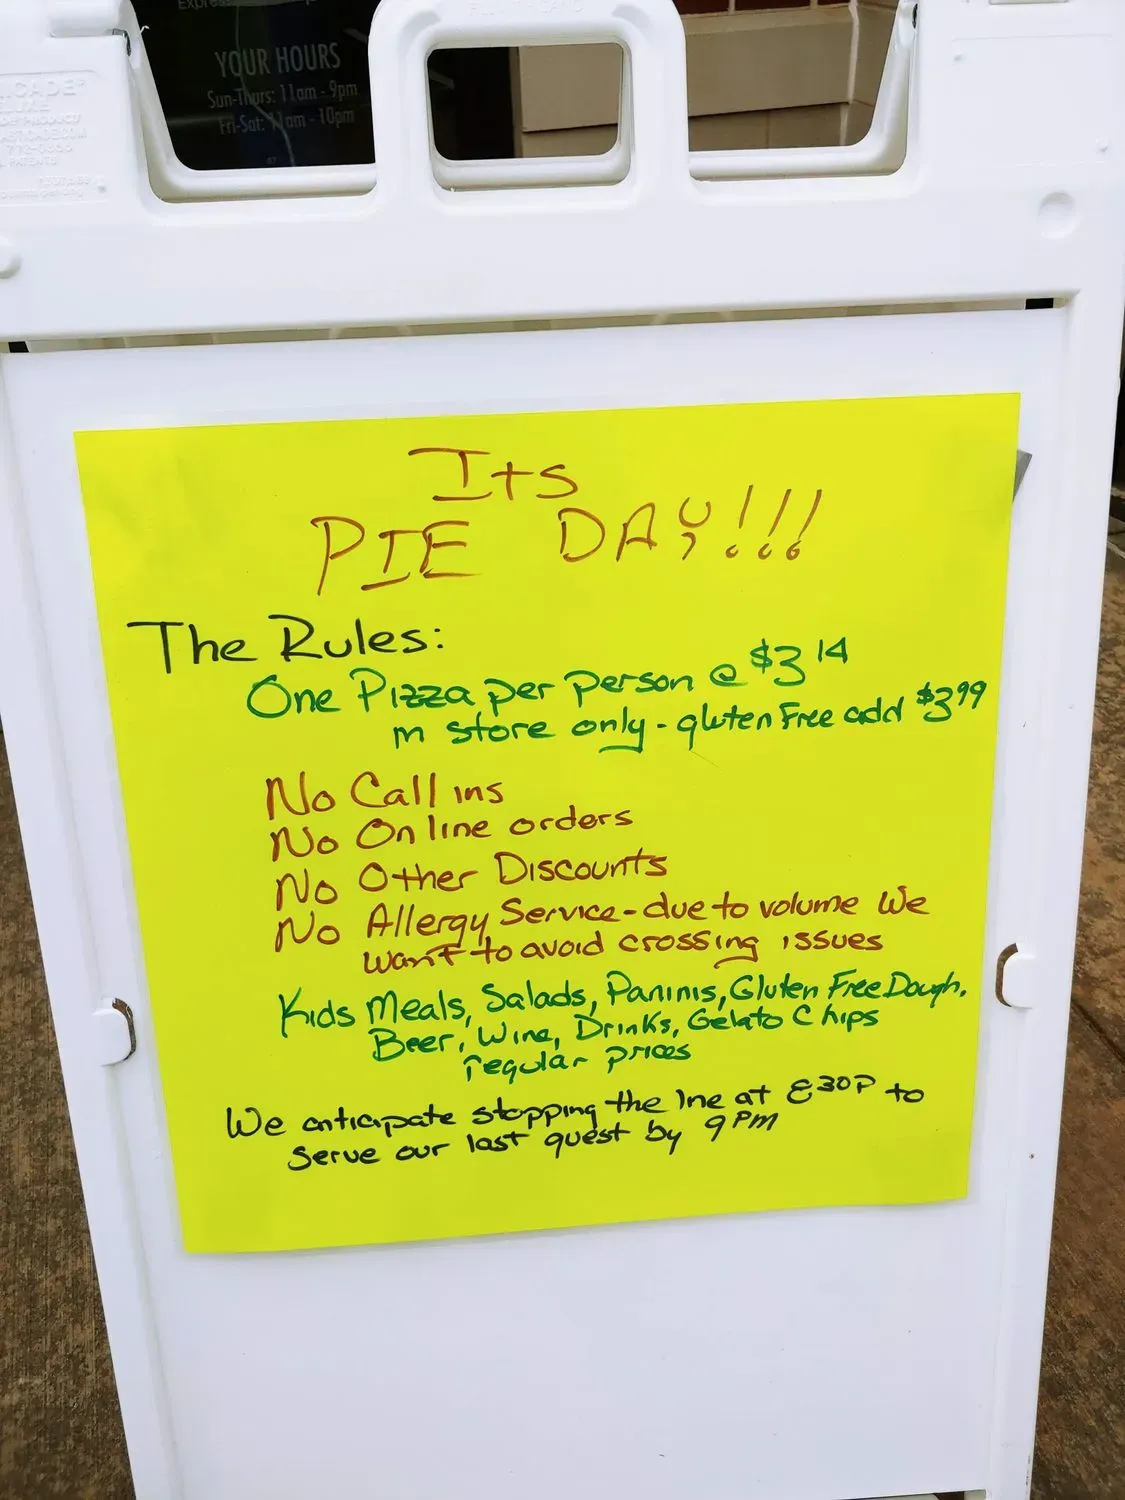 YOUR HOURS
Sun-Thurs: 11am - 9pm
Fri-Sat: 11am - 10pm
Its
PIE DAY!!!
The Rules:
One Pizza per person @ $3 14
in store only - gluten Free add $3 99
No Call ins
No Online orders
No Other Discounts
No Allergy Service - due to volume We
want to avoid crossing issues
Kids Meals, Salads, Paninis, Gluten Free Dough,
Beer, Wine, Drinks, Gelato Chips
regular prices
We anticipate stopping the line at 8 30P to
serve our last guest by 9 PM